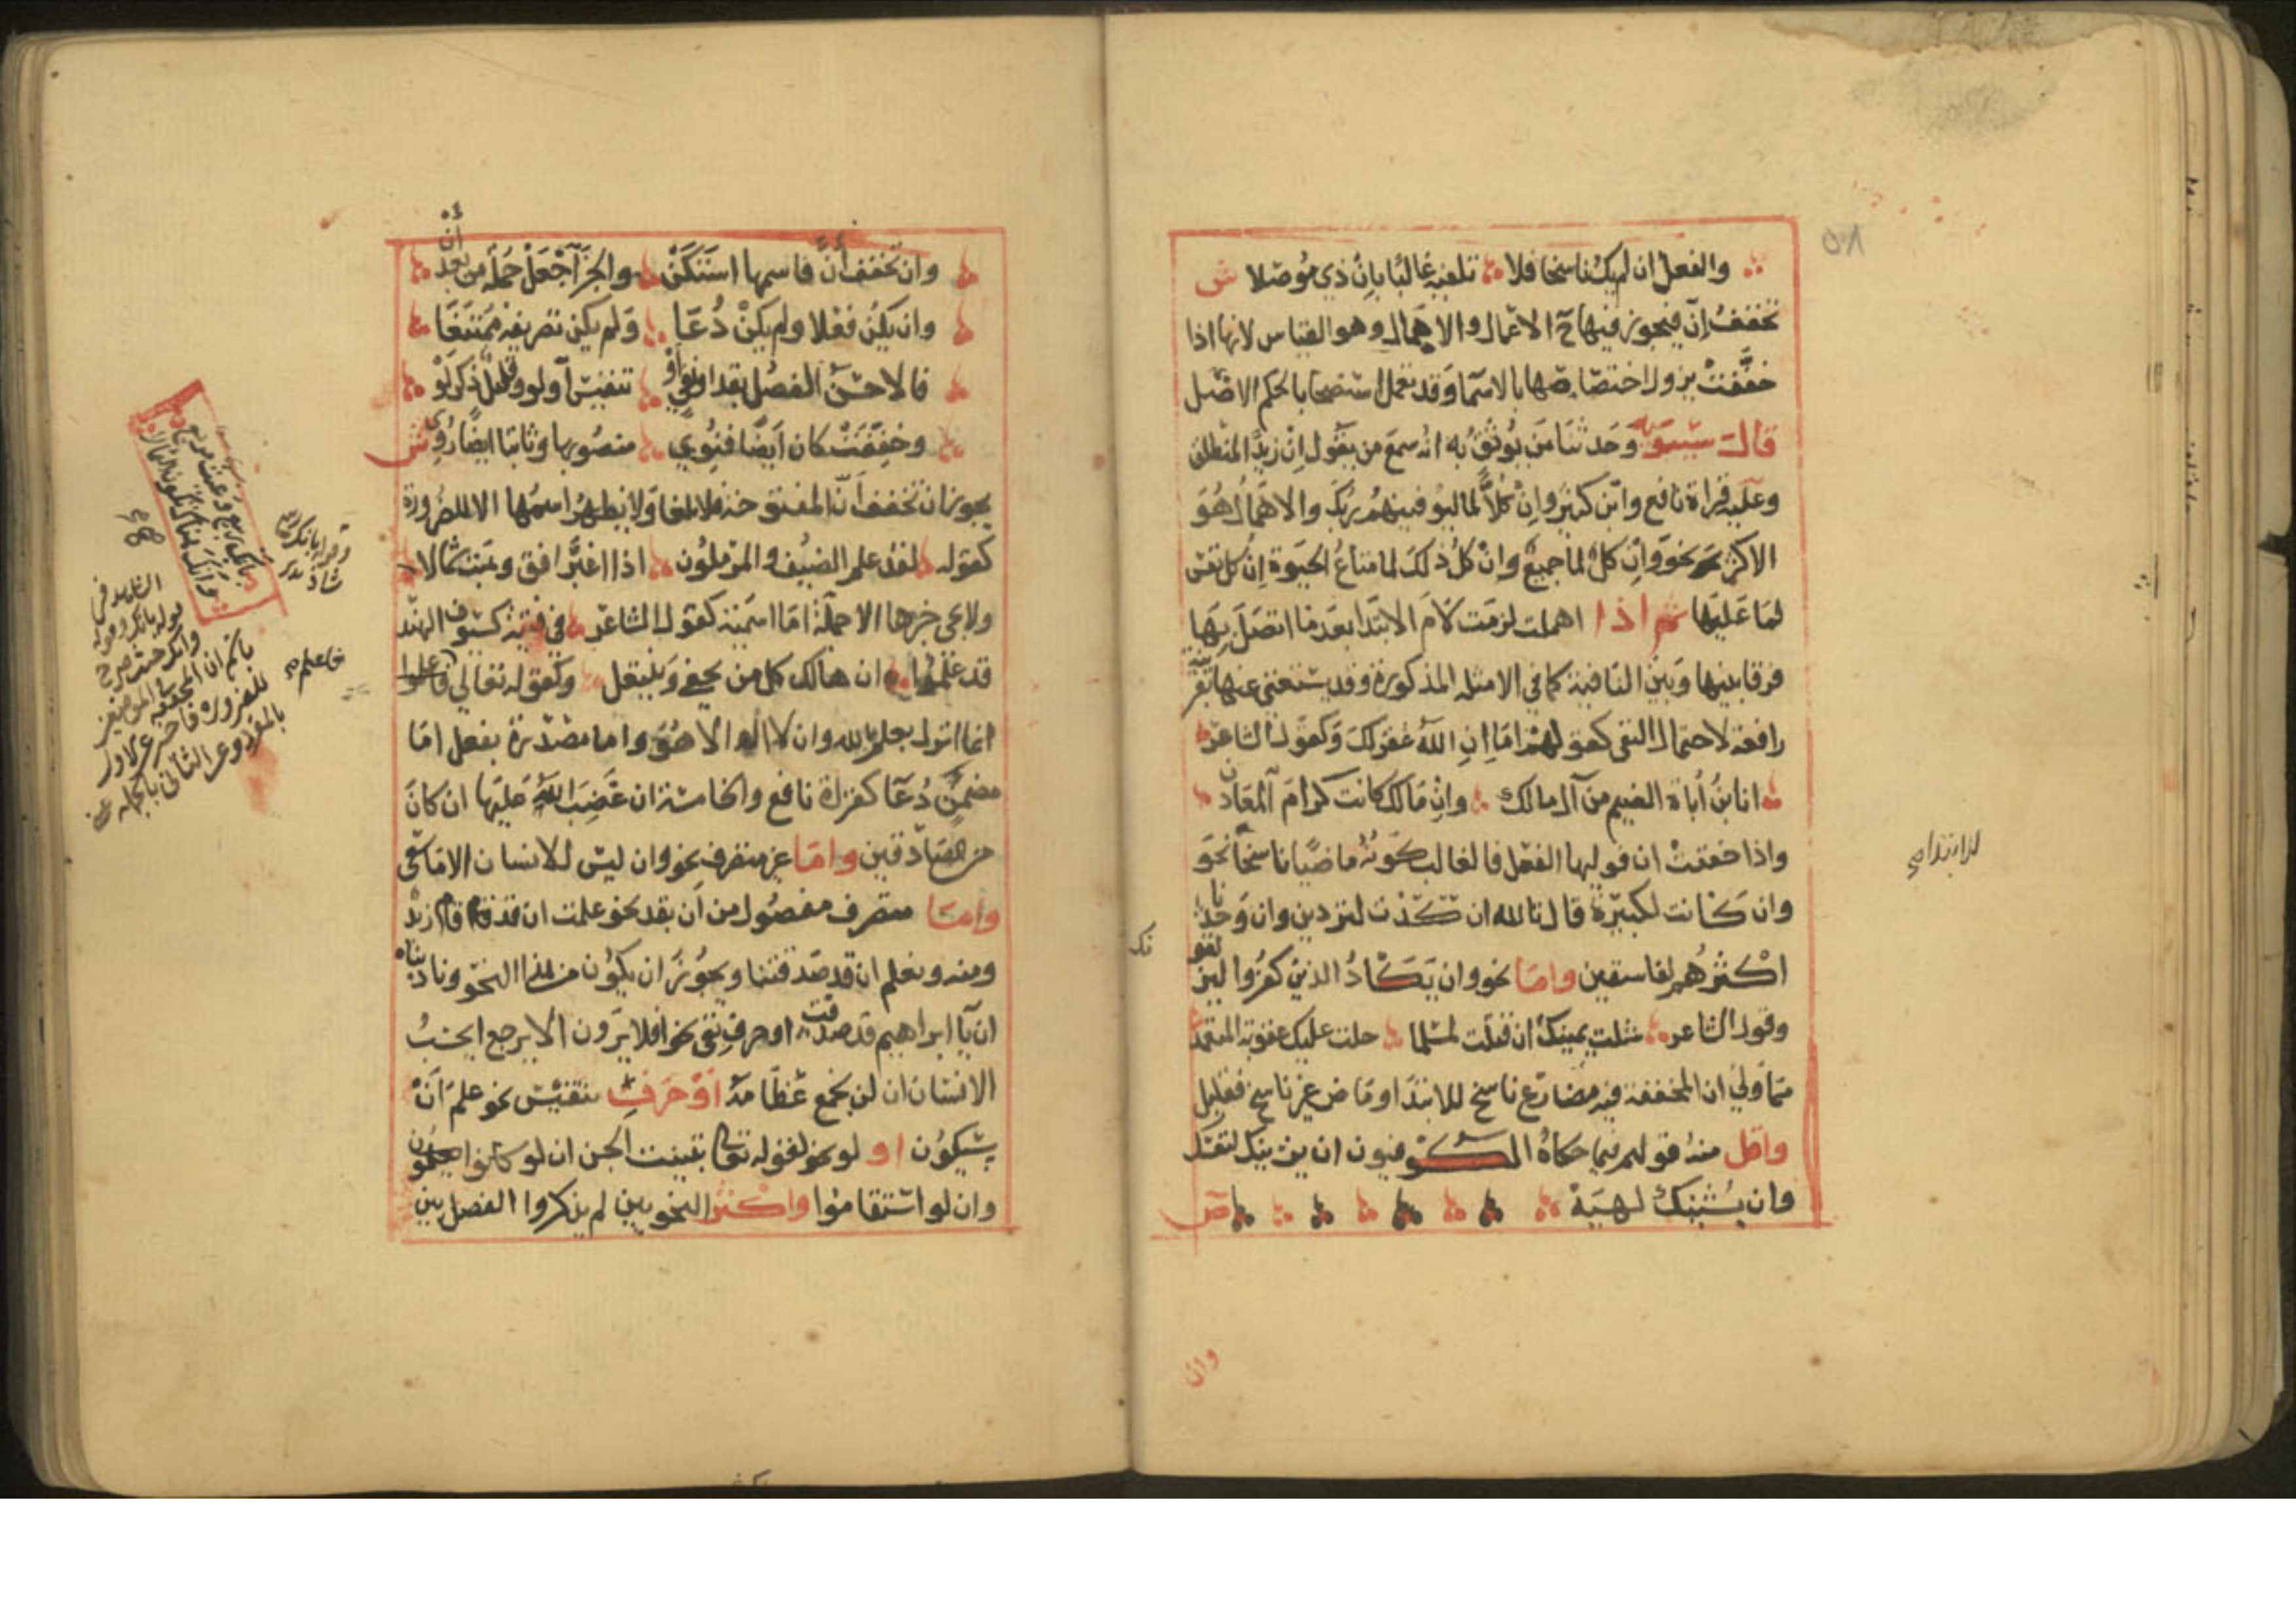 والفعل ان لم يك ناسخا فلا تلفيه غالبا بان ذي موصلا ش
تخفف إنّ فيجوز فيها ح الاعمال والاهمال وهو القياس لانها اذا
خففت يزول اختصاصها بالاسما وقد تعمل استصحابا بالحكم الاصل
قال سيبويه وحدثنا من يوثق به انه سمع من يقول إن زيدا المنطلق
وعليه قراة نافع وابن كثير وان كلا لما ليوفينهم ربك والاهمال هو
الاكثر نحو وان كل لما جميع وان كل ذلك لما متاع الحيوة إن كل نفس
لما عليها ثم اذا اهملت لزمت لام الابتدا بعد ما اتصل بها
فرقا بينها وبين النافية كما في الامثله المذكورة وقد يستغني عنها بقرينة
رافعة لاحتمال النفي كقولهم اما إن الله غفر لك وكقول الشاعر
انا ابن أباة الضيم من آل مالك وان مالك كانت كرام المعادن
واذا خففت ان فوليها الفعل فالغالب كونه ماضيا ناسخا نحو
وان كانت لكبيرة قال تالله ان كدت لتردين وان وجدنا
اكثرهم لفاسقين واما نحو وان يكاد الذين كفروا ليزلقونك
وقول الشاعر شلت يمينك ان قتلت لمسلما حلت عليك عقوبة المتعمد
مما ولي ان المخففة فيه مضارع ناسخ للابتدا وماض غير ناسخ فقليل
واقل منه قولهم فيما حكاه الكوفيون ان يزينك لنفسك
وان يشينك لهيه ص
وان
للابتدا صح
٥٨
وان تخفف أنّ فاسمها استكن والخبر اجعل جملة من بعد أن
وان يكن فعلا ولم يكن دعا ولم يكن تصريفه ممتنعا
فالاحسن الفصل بقد او نفي أو تنفيس آو لو وقليل ذكر لو
وخففت كان ايضا فنوي منصوبها وثابتا ايضا روي ش
يجوز ان تخفف أنّ المفتوحة فلا تلغا ولا يظهر اسمها الا للضرورة
كقوله لقد علم الضيف والمرملون اذا اغبر افق وهبت شمالا
ولا يجي خبرها الا جملة اما اسمية كقول الشاعر في فتية كسيوف الهند
قد علموا ان هالك كل من يحفى وينتعل وكقوله تعالي فاعلموا
انما انزل بعلم الله وان لا اله الا هو واما مصدرة بفعل اما
مضمن دعا كقراة نافع والخامسة ان غضب الله عليها ان كان
من الصادقين واما غير متصرف نحو وان ليس للانسان الا ما سعى
واما متصرف مفصول من ان بقد نحو علمت ان قد قام زيد
ومنه ونعلم ان قد صدقتنا ويجوز ان يكون من هذا النحو وناديناه
ان يا ابراهيم قد صدقت او حرف نفي نحو افلا يرون الا يرجع ايحسب
الانسان ان لن نجمع عظامه او حرف تنفيس نحو علم أن
سيكون او لو نحو لقوله تعالى تبينت الجن ان لو كانوا يعلمون
وان لو استقاموا واكثر النحويين لم يذكروا الفصل بين
بانك ربيع وغيث مريع
وانك هناك تكون الثمالا
فاعلم صح